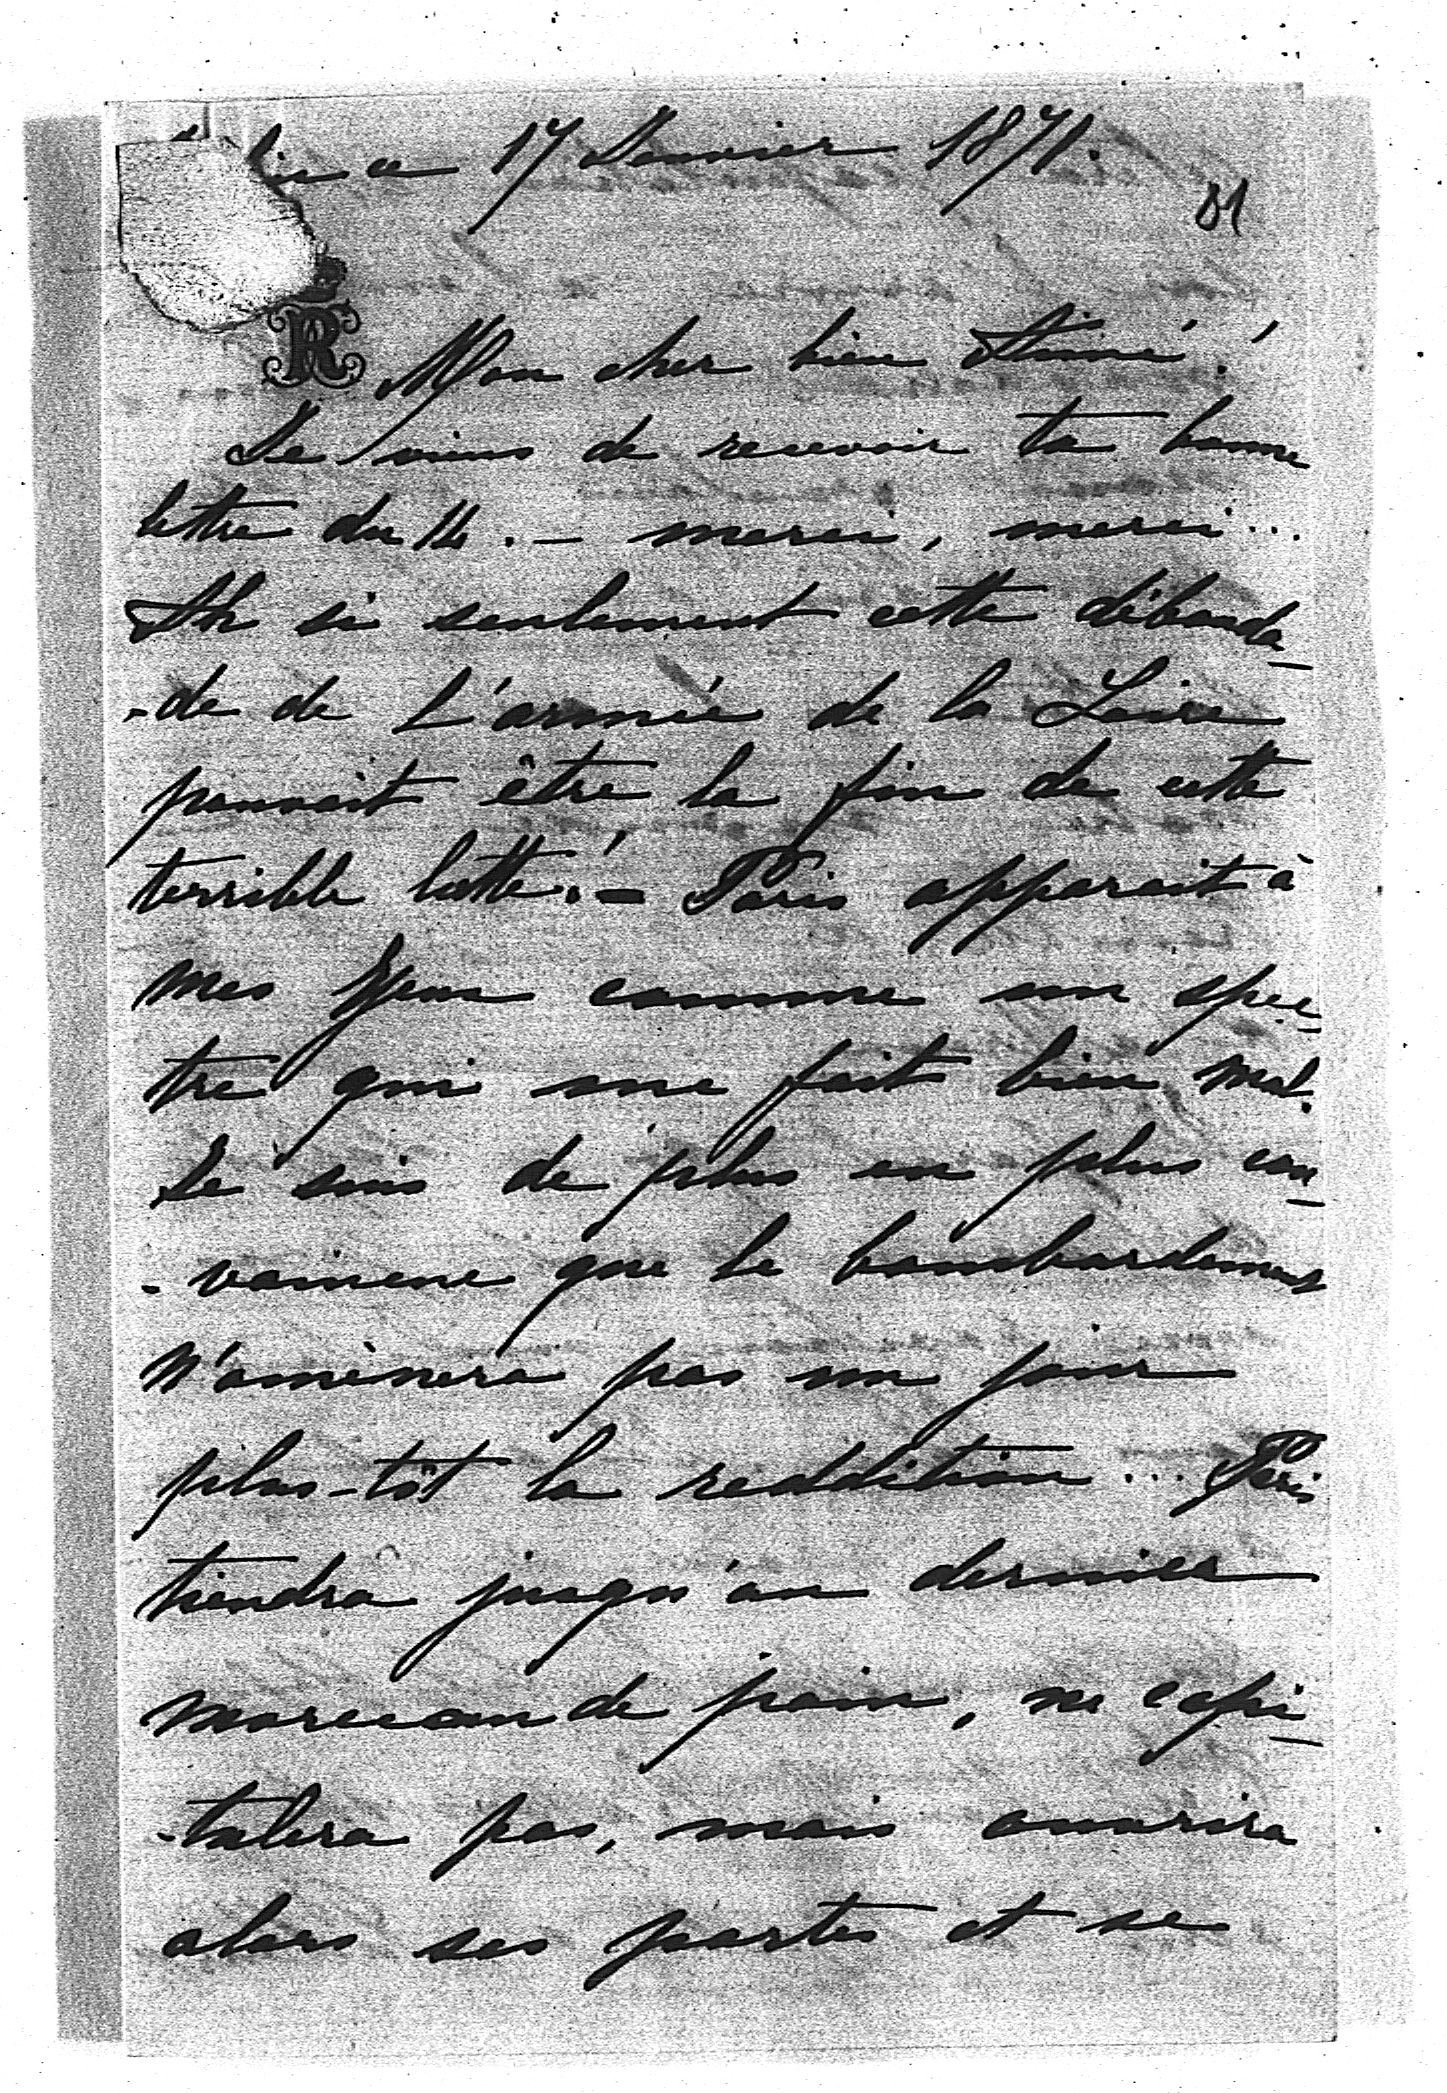 ce 17 Janvier 1871.
81
R
Mon cher bien Aimé!
Je viens de recevoir ta bonne
lettre du 14. – merci, merci...
Ah si seulement cette débanda-
-de de L'armée de la Loire
pouvait être la fin de cette
terrible lutte! – Paris apparait à
mes Yeux comme un spec-
tre qui me fait bien mal.
Je suis de plus en plus con-
-vaincue que le bombardement
N'amènera pas un jour
plus-tôt la reddition... Paris
tiendra jusqu'au dernier
morceau de pain, ne capi-
-tulera pas, mais ouvrira
alors ses portes et se